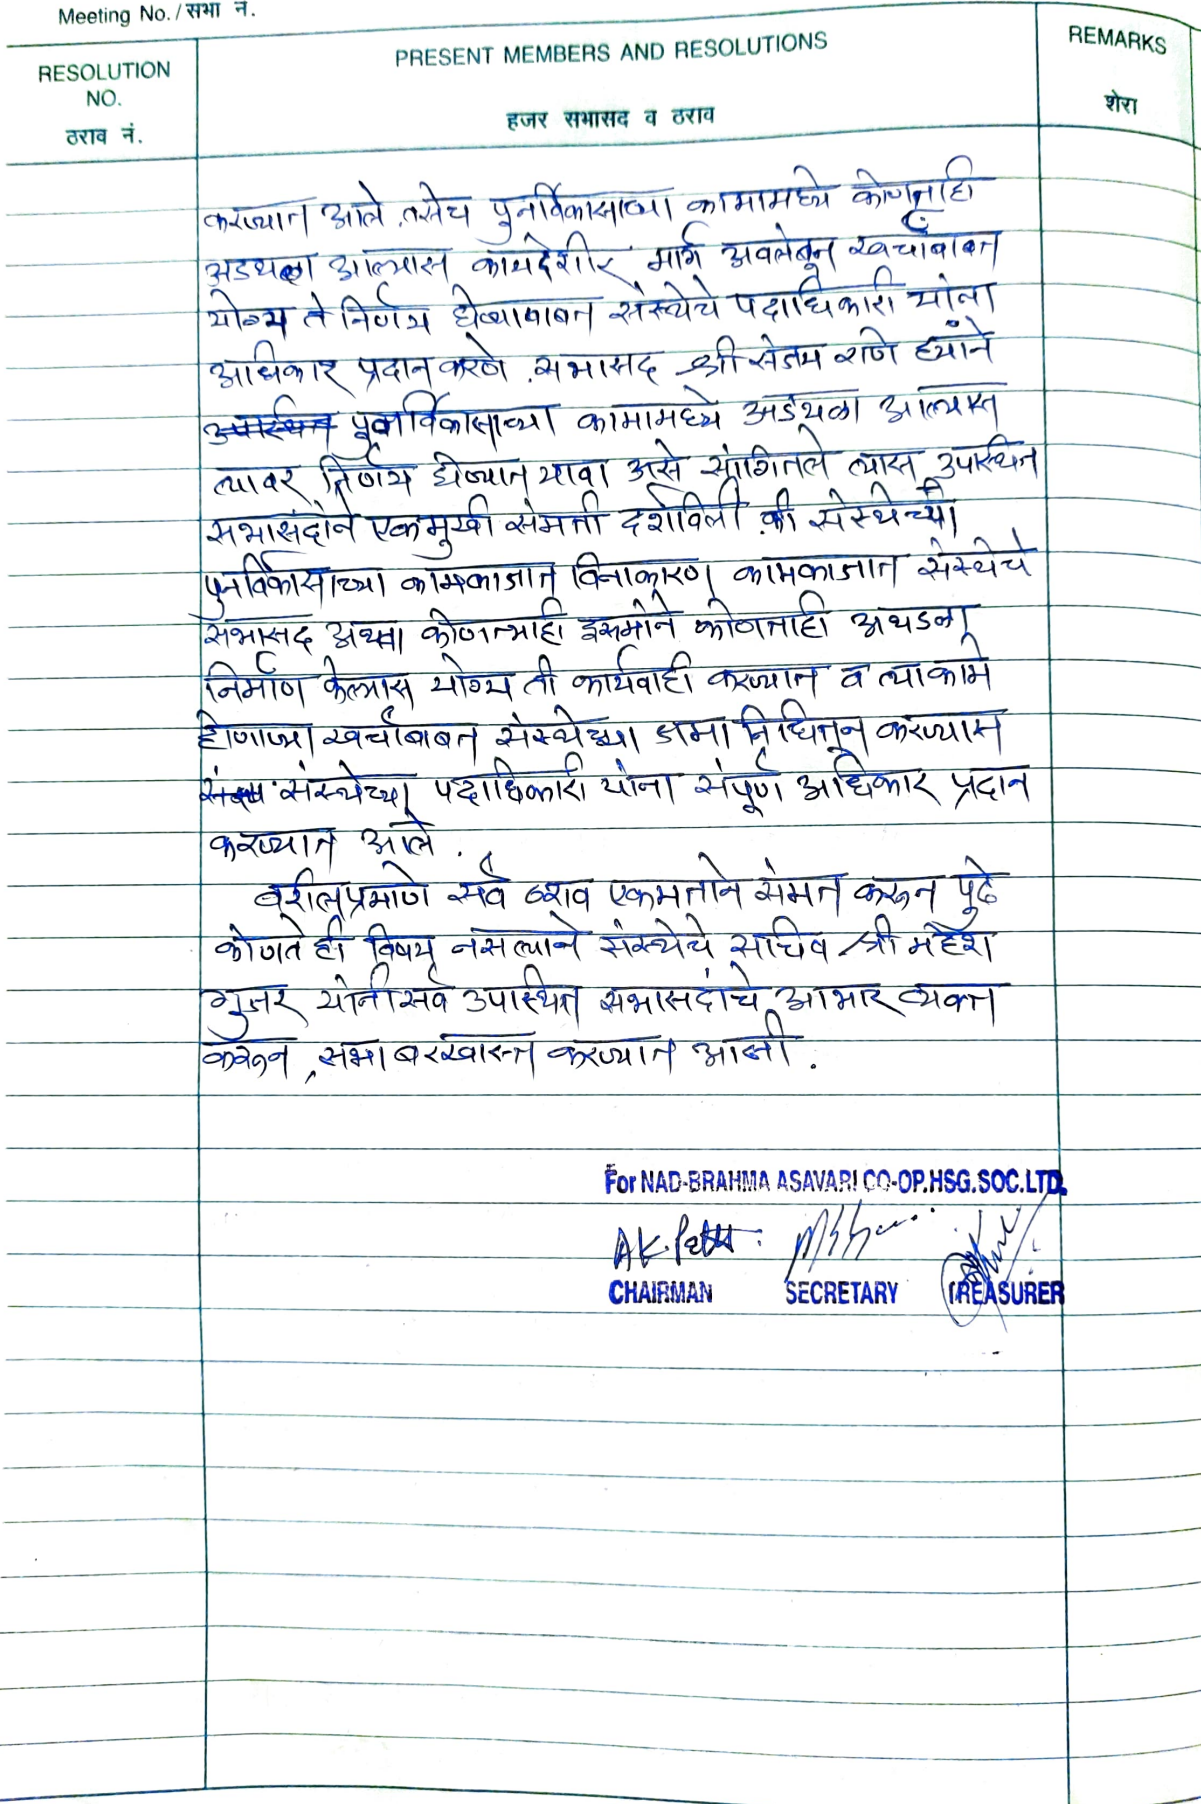 Meeting No. / सभा नं.
RESOLUTION NO. ठराव नं.
PRESENT MEMBERS AND RESOLUTIONS
हजर सभासद व ठराव
REMARKS
शेरा
करण्यात आले. तसेच पुनर्विकासाच्या कामामध्ये कोणताही
अडथळा आल्यास कायदेशीर मार्ग अवलंबून खर्चाबाबत
योग्य ते निर्णय घेण्याबाबत संस्थेचे पदाधिकारी यांना
अधिकार प्रदान करणे. सभासद श्री संजय राणे ह्यांने
उपस्थित पुनर्विकासाच्या कामामध्ये अडथळा आल्यास
त्यावर निर्णय घेण्यात यावा असे सांगितले त्यास उपस्थित
सभासदांने एकमुखी संमती दर्शविली की संस्थेच्या
पुनर्विकासाच्या कामकाजात विनाकारण कामकाजात संस्थेचे
सभासद अथवा कोणत्याही इसमाने कोणताही अथडळा
निर्माण केल्यास योग्य ती कार्यवाही करण्यात व त्याकामे
होणाऱ्या खर्चाबाबत संस्थेच्या जमा निधितून करण्यास
संस्थेच्या पदाधिकारी यांना संपूर्ण अधिकार प्रदान
करण्यात आले.
वरीलप्रमाणे सर्व ठराव एकमताने संमत करून पुढे
कोणतेही विषय नसल्याने संस्थेचे सचिव श्री महेश
गुजर यांनी सर्व उपस्थित सभासदांचे आभार व्यक्त
करून, सभा बरखास्त करण्यात आली.
For NAD-BRAHMA ASAVARI CO-OP.HSG.SOC.LTD.
CHAIRMAN SECRETARY TREASURER